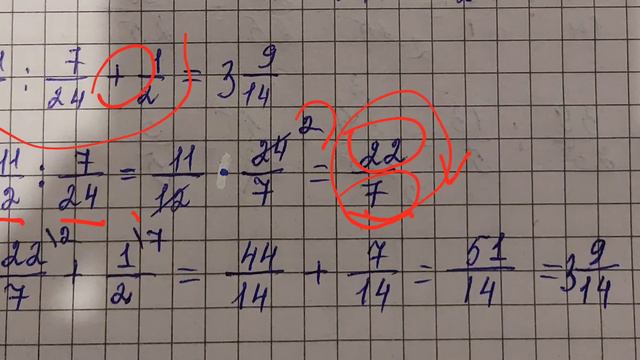 : 7/24 + 1/2 = 3 9/14
11/2 : 7/24 = 11/12 · 24/7 = 22/7
2
22/7 \2 + 1/2 \7 = 44/14 + 7/14 = 51/14 = 3 9/14